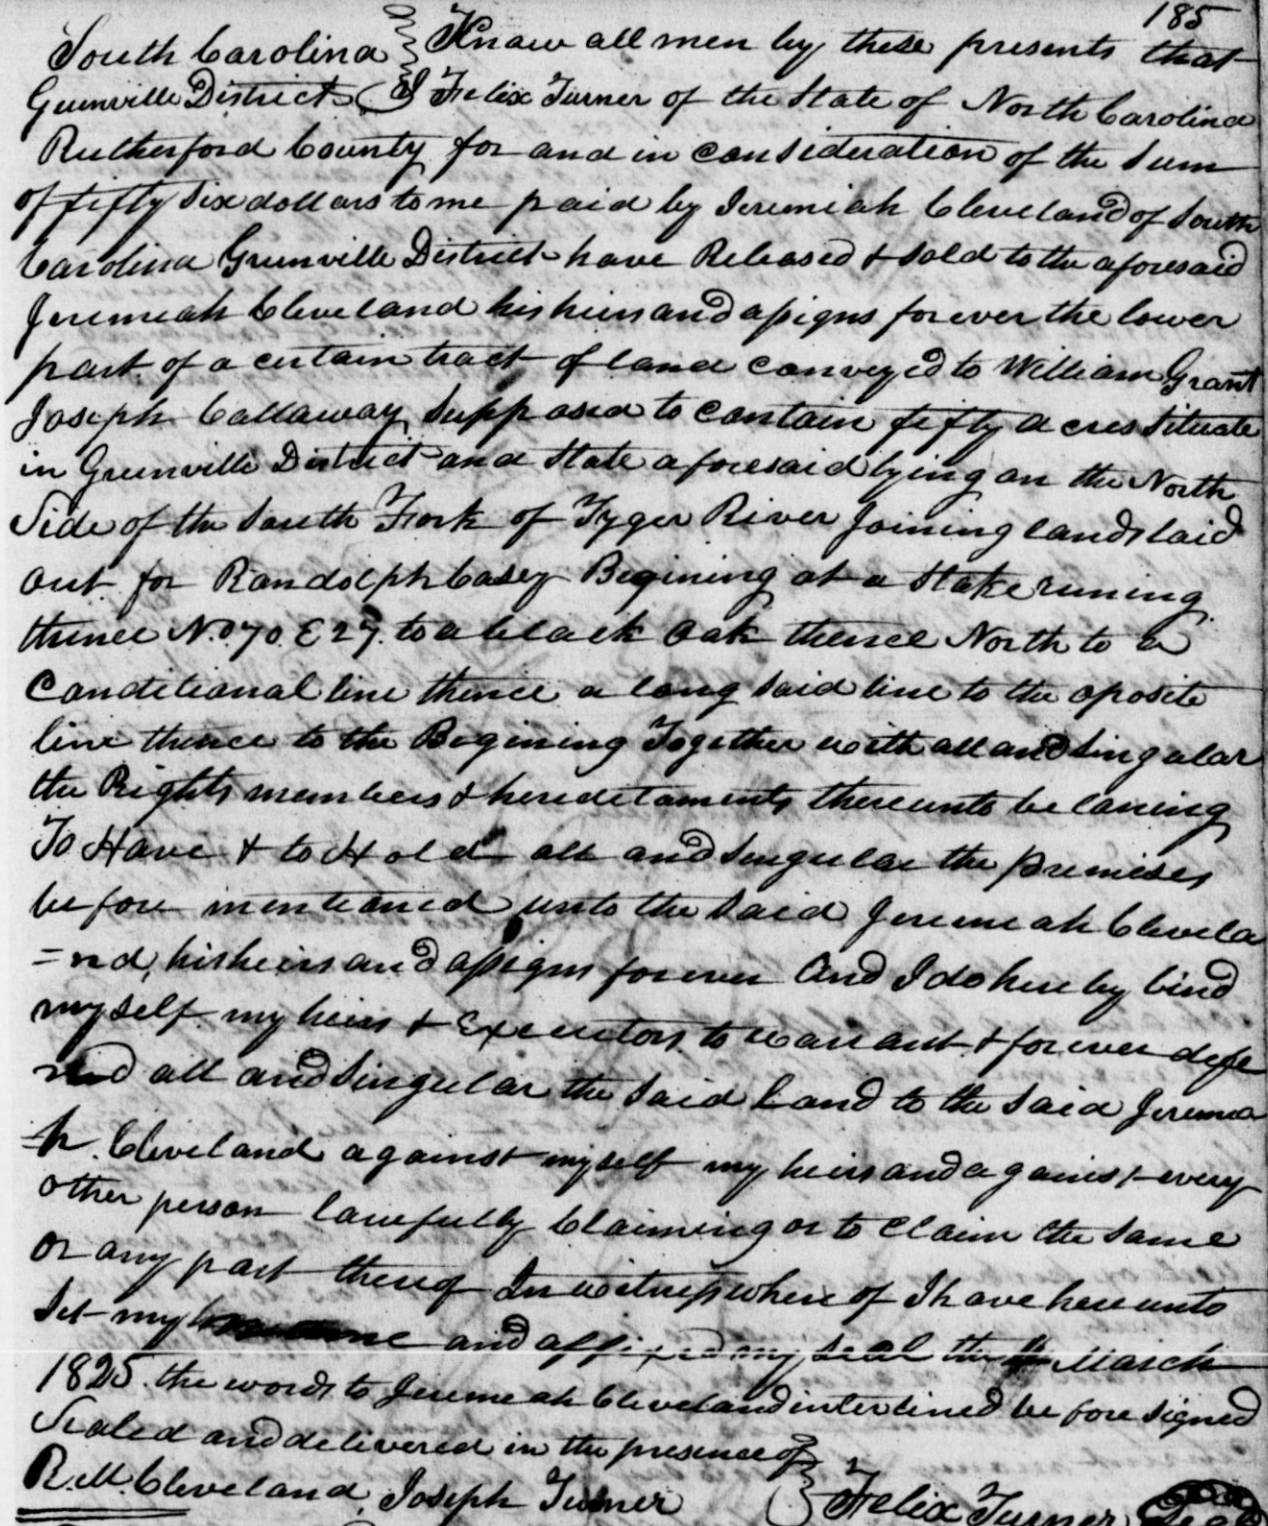 185
South Carolina Know all men by these presents that
Greenville District I Felix Turner of the State of North Carolina
Rutherford County for and in consideration of the Sum
of fifty six dollars to me paid by Jeremiah Cleveland of South
Carolina Greenville District have Released & sold to the aforesaid
Jeremeah Cleveland his heirs and assigns forever the lower
part of a certain tract of land conveyed to William Grant
Joseph Callaway Supposed to contain fifty acres situate
in Greenville District and State aforesaid lying on the North
Side of the South Fork of Tyger River Joining lands laid
out for Randolph Casey Begining at a Stake runing
thence N.o 70 E 27. to a black Oak thence North to a
Conditional line thence a long said line to the oposite
line thence to the Begining Together with all and Singular
the Rights members & heredetaments thereunto belonging
To Have & to Hold all and Singular the premises
before mentioned unto the said Jeremeah Clevela
=nd, his heirs and assigns forever And I do hereby bind
myself my heirs & Executors to warrant & forever defe
nd all and Singular the Said Land to the Said Jeremea
=h. Cleveland against myself my heirs and against every
other person lawfully Claiming or to claim the same
or any part thereof In witness where of I have hereunto
Set my and affixed my seal the March
1825. the words to Jeremeah Cleveland interlined before signed
Sealed and delivered in the presence of
R. M. Cleveland, Joseph Turner Felix Turner Seal